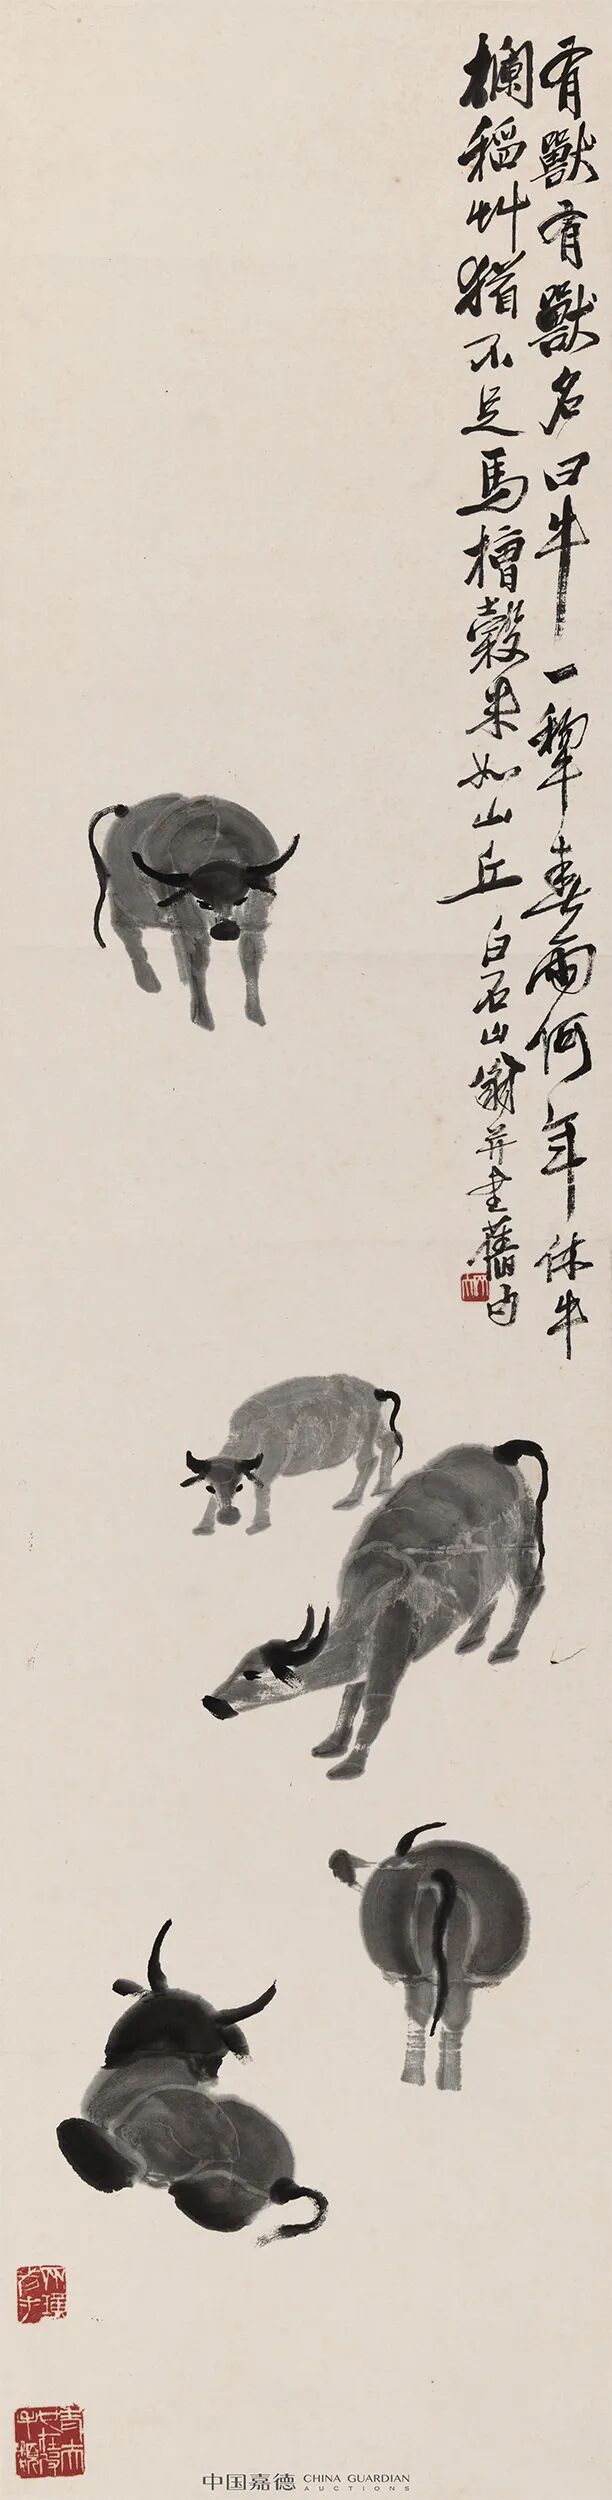 有獸有獸名曰牛一犂春雨何年休牛
欄稻艸猶不足馬槽穀米如山丘
白石山翁并書舊句
中国嘉德 CHINA GUARDIAN
AUCTIONS